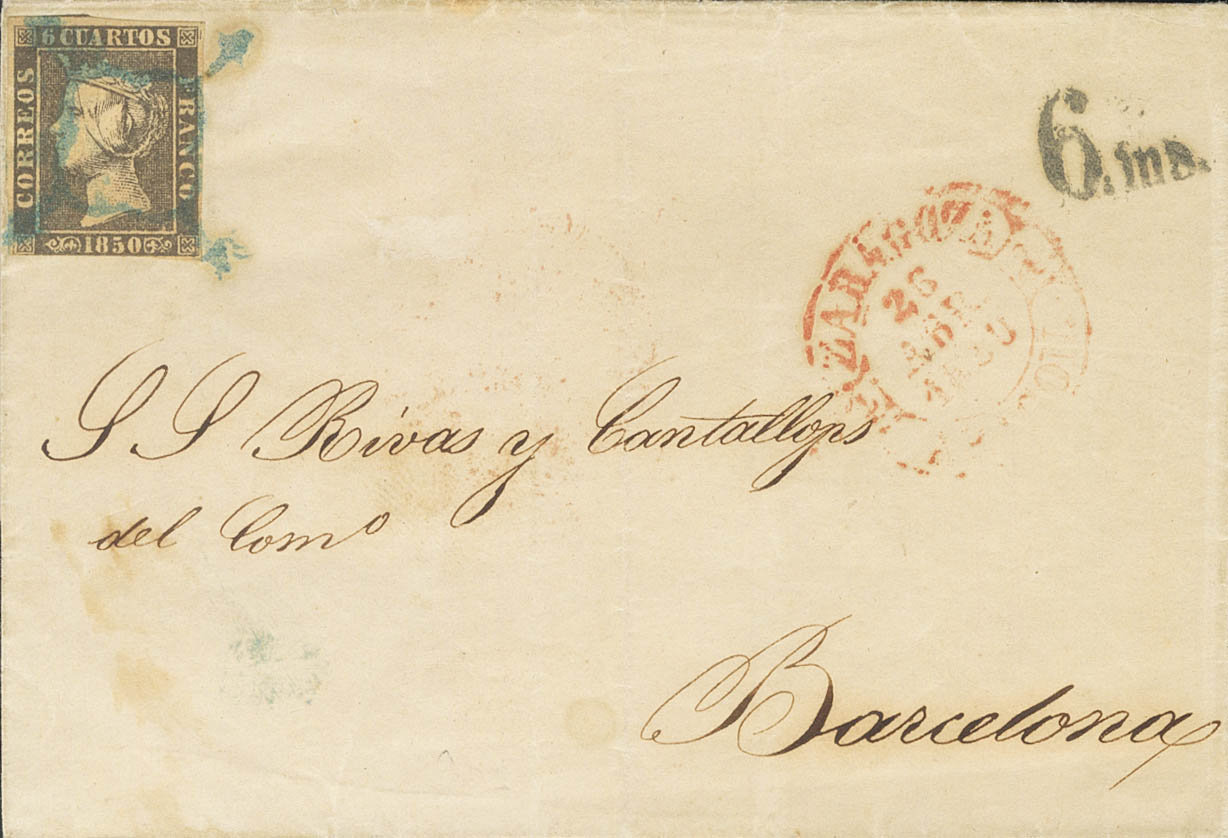 6 CUARTOS
CORREOS
FRANCO
1850
6.ms.
ZARAGOZA
26
AB
1850
S S Rivas y Cantallops
del Comº
Barcelona